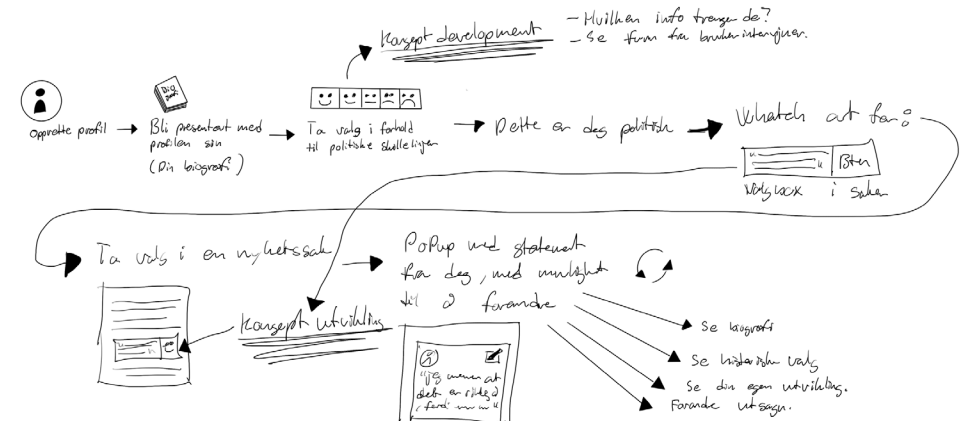 Konsept development
- Hvilken info trenger de?
- Se funn fra brukerintervjuer.
Opprette profil
Bio
grafi
Bli presentert med
profilen sin
(Din biografi)
Ta valg i forhold
til politiske skillelinjer
Dette er deg politisk
Whatch out for:
Btn
Valgboox i saken
Ta valg i en nyhetssak
PoPup med statement
fra deg, med mulighet
til å forandre
Konsept utvikling
"jeg mener at
det er riktig å
Se biografi
Se historiske valg
Se din egen utvikling.
Forandre utsagn.